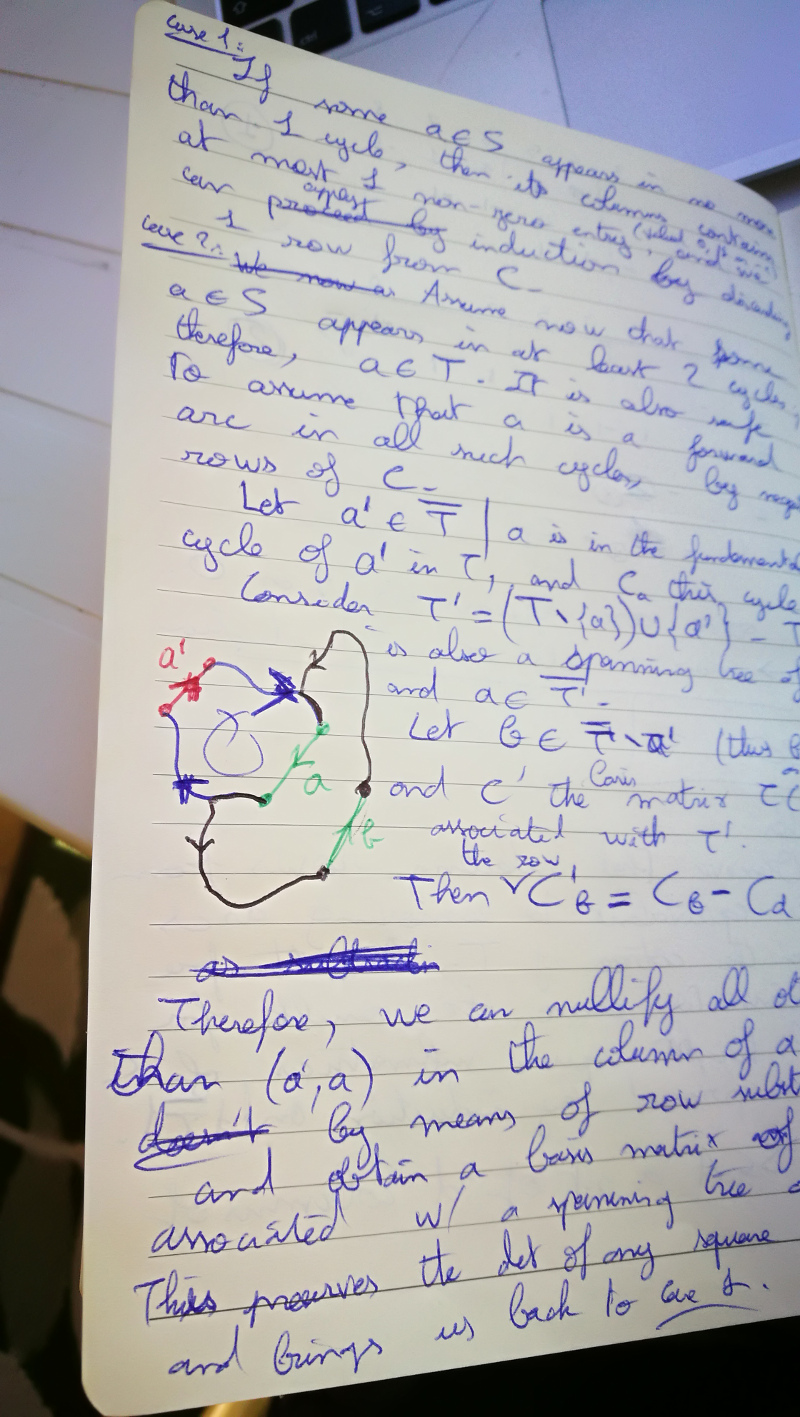 Case 1:
If some a∈S appears in no more
than 1 cycle, then its columns contains
at most 1 non-zero entry, and we
can appeal induction by discarding
1 row from C.
Case 2: Assume now that some
a∈S appears in at least 2 cycles;
therefore, a∈T. It is also safe
to assume that a is a forward
arc in all such cycles, by
rows of C.
Let a' ∈ T̅ | a is in the fundamental
cycle of a' in T, and Ca this cycle
Consider T' = (T\{a})∪{a'} -
is also a spanning tree of
and a∈ T̅'.
Let b ∈ T̅ \ a' (thus
and C' the basis matrix
associated with T'.
Then the row C'b = Cb - Ca
a'
a
b
Therefore, we can nullify all
than (a',a) in the column of a
by means of row
and obtain a basis matrix of
associated w/ a spanning tree
This preserves the det of any square
and brings us back to case 1.